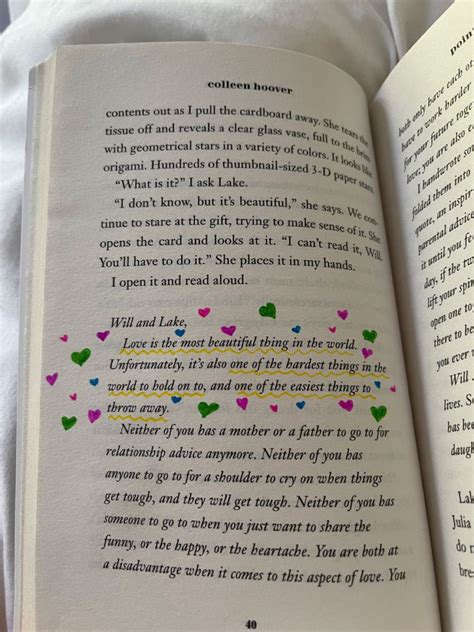 colleen hoover
contents out as I pull the cardboard away. She tears the
tissue off and reveals a clear glass vase, full to the brim
with geometrical stars in a variety of colors. It looks like
origami. Hundreds of thumbnail-sized 3-D paper stars.
“What is it?” I ask Lake.
“I don’t know, but it’s beautiful,” she says. We con-
tinue to stare at the gift, trying to make sense of it. She
opens the card and looks at it. “I can’t read it, Will.
You’ll have to do it.” She places it in my hands.
I open it and read aloud.
Will and Lake,
Love is the most beautiful thing in the world.
Unfortunately, it’s also one of the hardest things in the
world to hold on to, and one of the easiest things to
throw away.
Neither of you has a mother or a father to go to for
relationship advice anymore. Neither of you has
anyone to go to for a shoulder to cry on when things
get tough, and they will get tough. Neither of you has
someone to go to when you just want to share the
funny, or the happy, or the heartache. You are both at
a disadvantage when it comes to this aspect of love. You
40
poin
both only have each ot
have to work harder
for your future toge
love; you are also e
I handwrote so
folded them into
quote, an inspir
parental advice
it until you fe
day, if the tw
lift your spir
open one to
there to be
you ever
Will
lives. S
daug
Lak
Julia
do n
bre